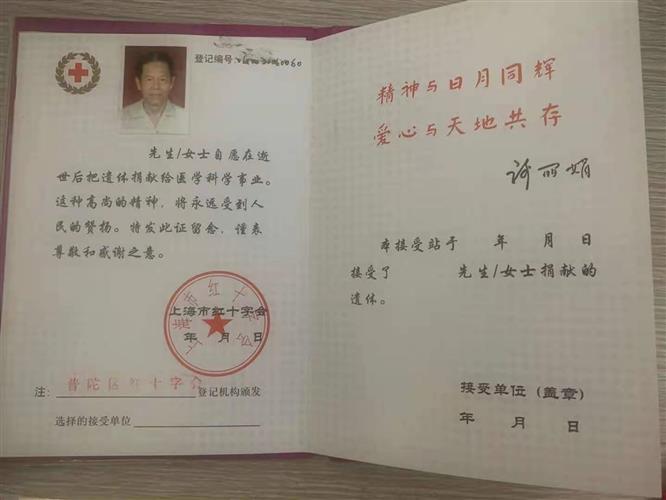 登记编号:
先生/女士自愿在逝
世后把遗体捐献给医学科学事业。
这种高尚的精神，将永远受到人
民的赞扬。特发此证留念，谨表
尊敬和感谢之意。
上海市红十字会
年 月 日
注：普陀区红十字会登记机构颁发
选择的接受单位
精神与日月同辉
爱心与天地共存
许丽娟
本接受站于 年 月 日
接受了 先生/女士捐献的
遗体。
接受单位（盖章）
年 月 日